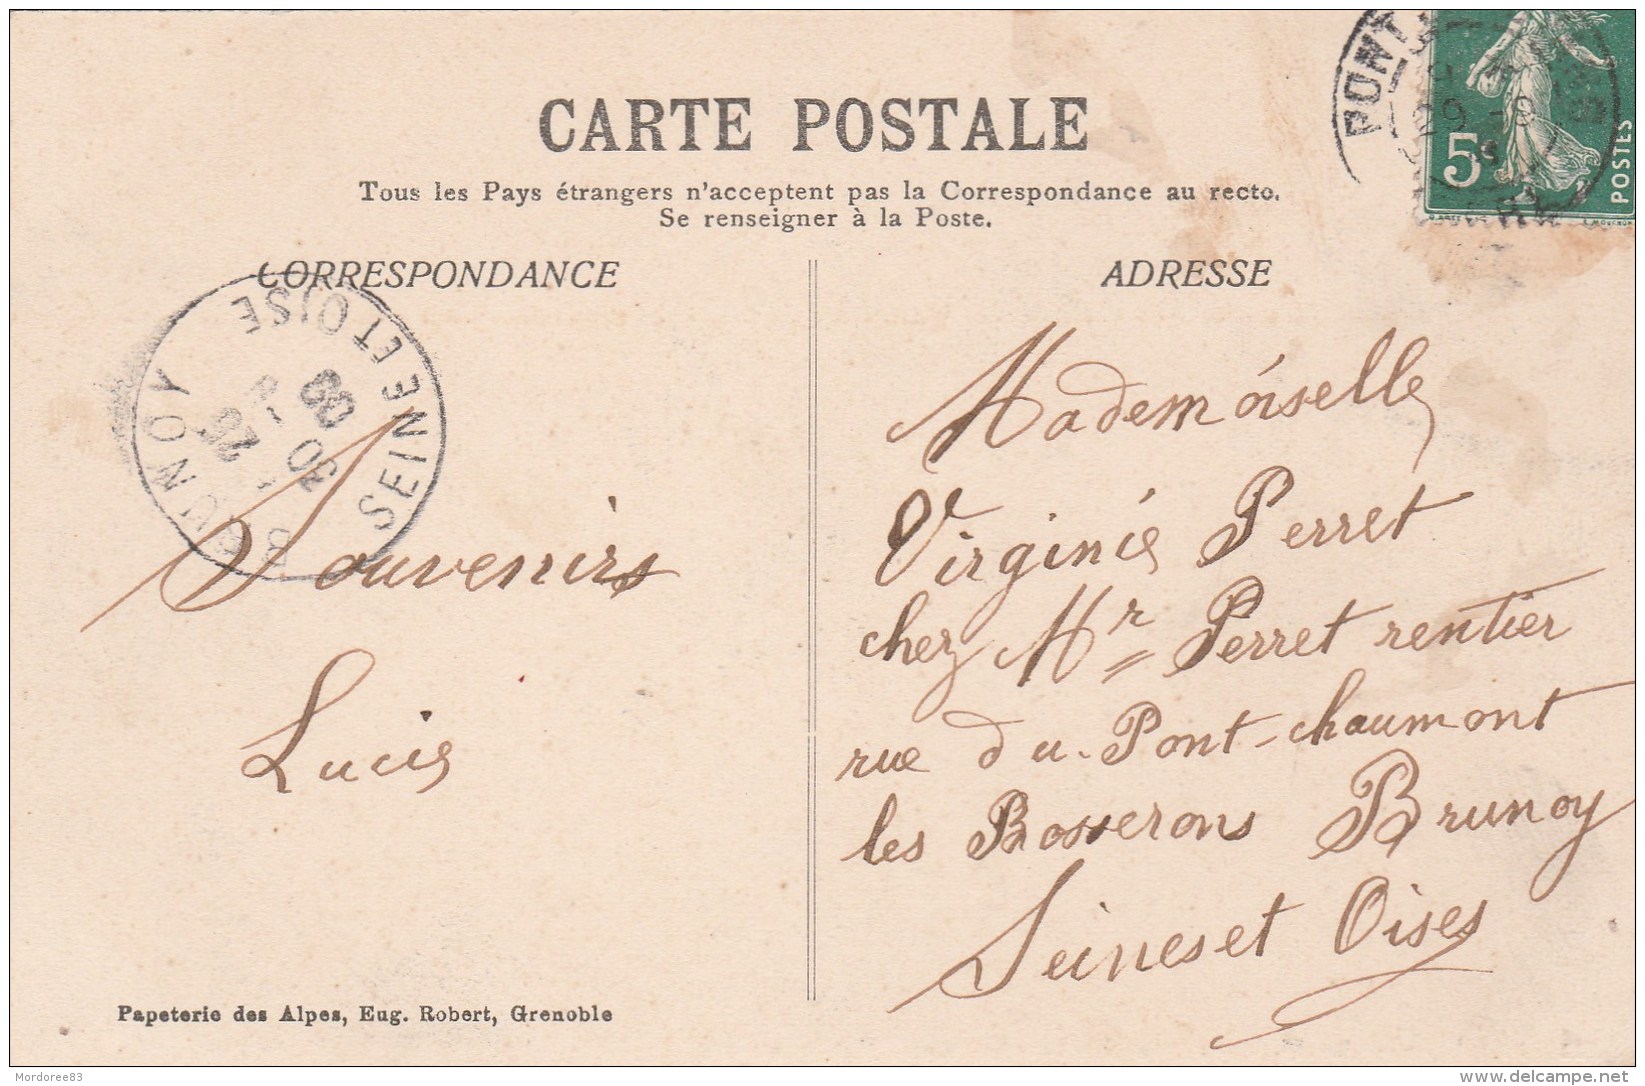 CARTE POSTALE
Tous les Pays étrangers n'acceptent pas la Correspondance au recto.
Se renseigner à la Poste.
CORRESPONDANCE
ADRESSE
PONT
5
POSTES
BRUNOY
SEINE ET OISE
30
09
Souvenirs
Lucie
Mademoiselle
Virginie Perret
chez Mr Perret rentier
rue du Pont-chaumont
les Bosserons Brunoy
Seines et Oises
Papeterie des Alpes, Eug. Robert, Grenoble
Mordoree83
delcampe.net